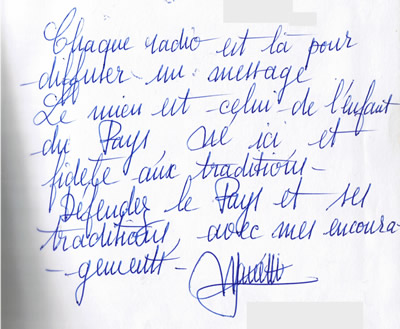 Chaque radio est là pour
diffuser un message
Le mien est celui de l'enfant
du Pays, né ici et
fidèle aux traditions -
Défendez le Pays et ses
traditions, avec mes encoura-
-gements -